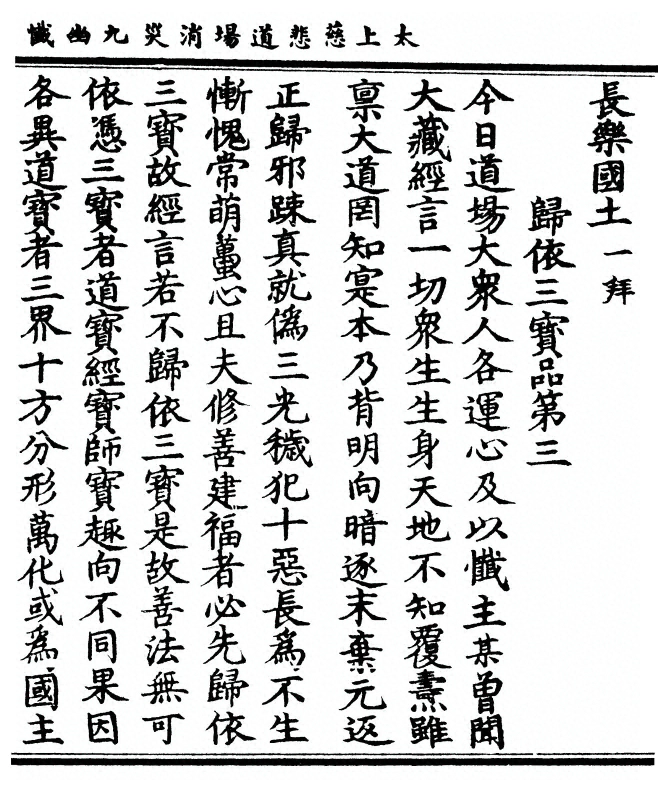 太上慈悲道場消災九幽懺
長樂國土一拜
歸依三寶品第三
今日道場大衆人各運心及以懺主某曾聞
大藏經言一切衆生生身天地不知覆燾雖
禀大道罔知寔本乃背明向暗逐末棄元返
正歸邪踈真就僞三光穢犯十惡長爲不生
慚愧常萌蠆心且夫修善建福者必先歸依
三寶故經言若不歸依三寶是故善法無可
依憑三寶者道寶經寶師寶趣向不同果因
各異道寶者三界十方分形萬化或爲國主